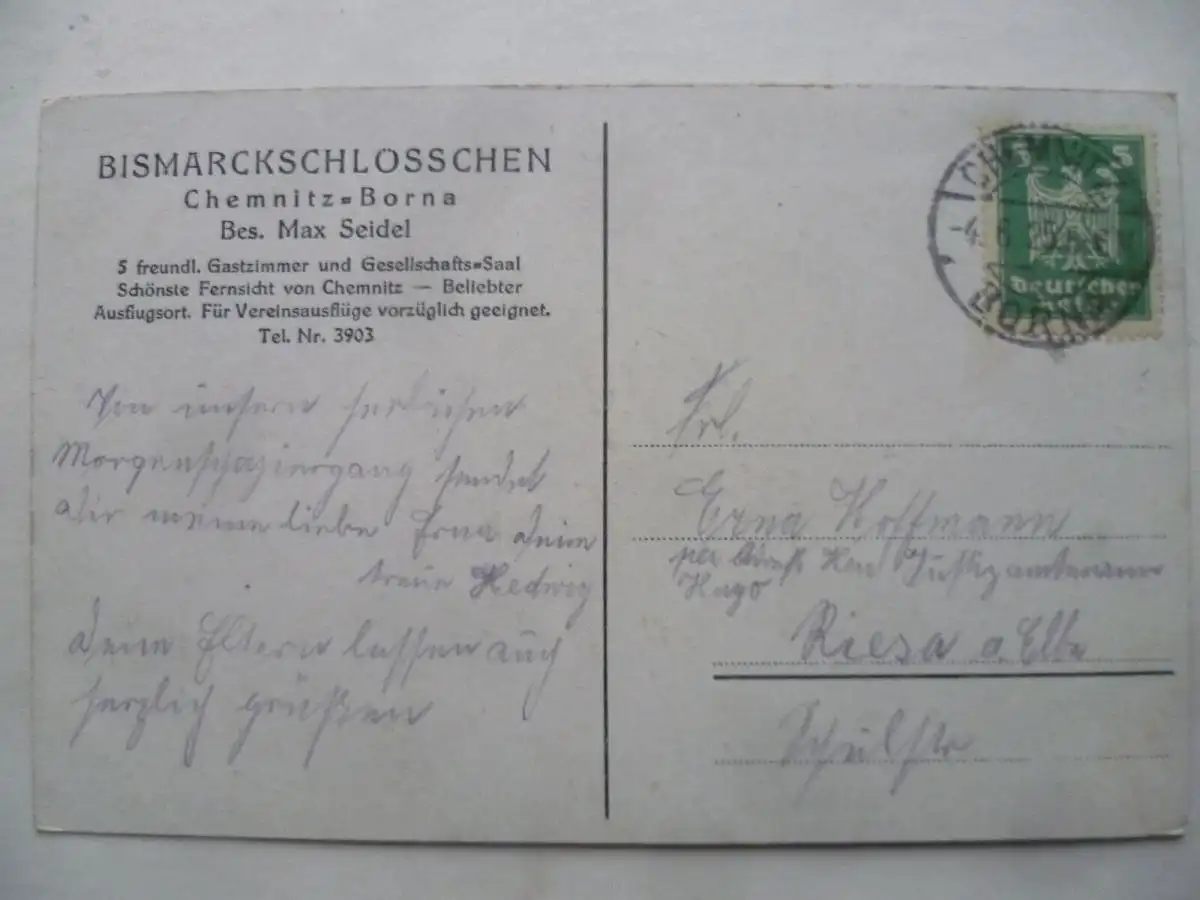 BISMARCKSCHLÖSSCHEN
Chemnitz=Borna
Bes. Max Seidel
5 freundl. Gastzimmer und Gesellschafts=Saal
Schönste Fernsicht von Chemnitz — Beliebter
Ausflugsort. Für Vereinsausflüge vorzüglich geeignet.
Tel. Nr. 3903
Von unsern herlichen
Morgenspaziergang sendet
dir meine liebe Erna deine
treue Hedwig
deine Eltern lassen auch
herzlich grüßen
5 5
Deutsches
Reich
CHEMNITZ
BORNA
Frl.
Erna Hoffmann
per Herrn
Hugo
Riesa a. Elbe
Schulstr